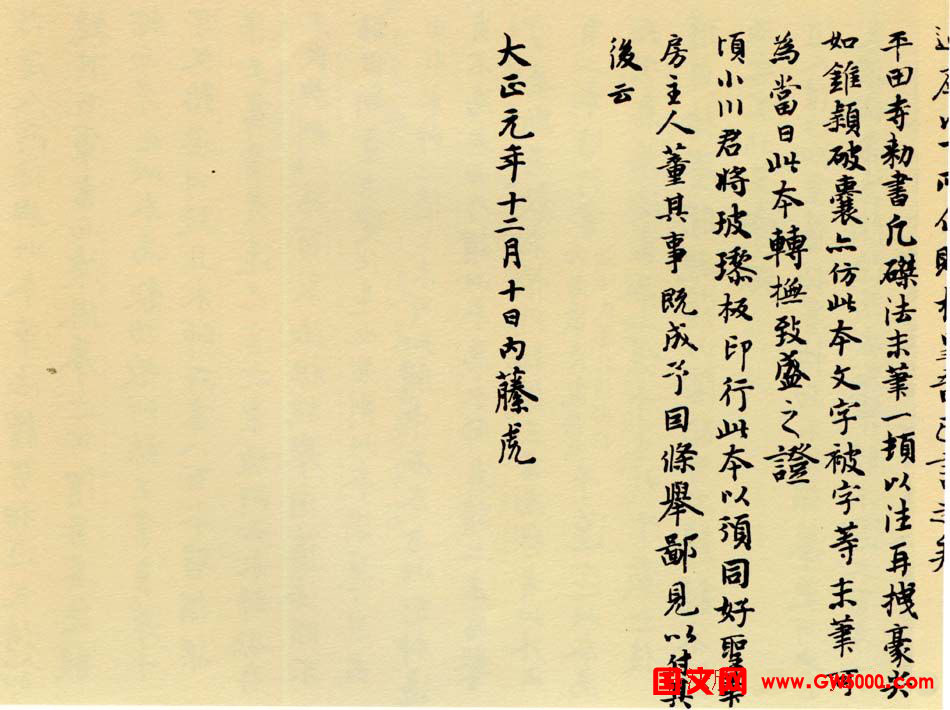 平田寺勅書凡磔法末筆一頓以注再拽豪尖
如錐穎破囊亦仿此本文字被字等末筆可
為當日此本轉摹致盛之證
頃小川君將玻瓈板印行此本以須同好聖
房主人董其事既成予因條舉鄙見以付其
後云
大正元年十二月十日內藤虎
国文网 www.GW5000.com